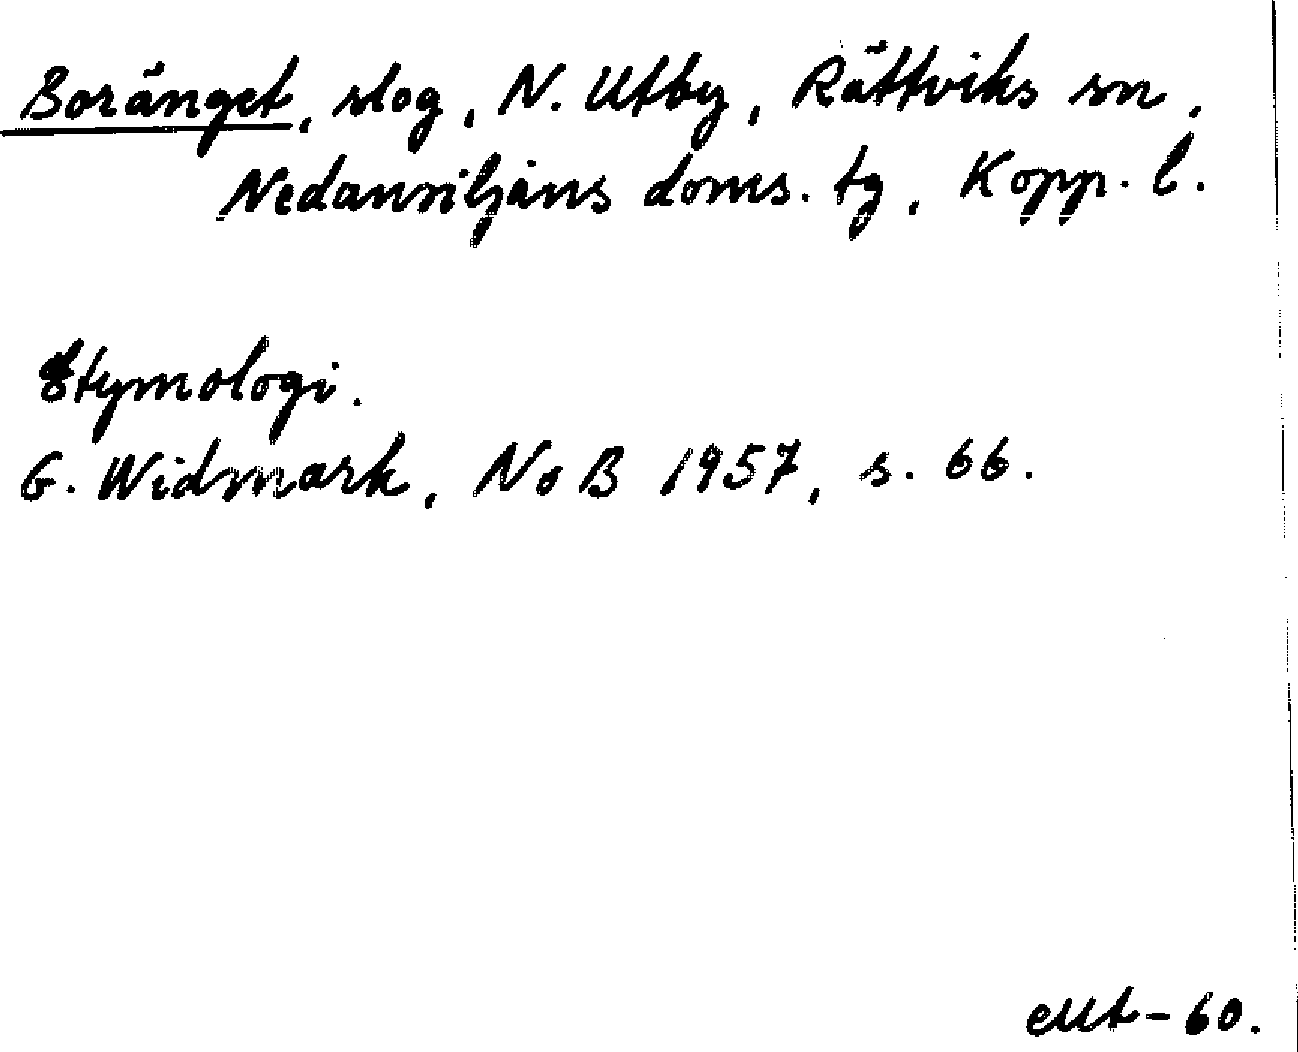 Boränget, slog, N. Utby, Rättviks sn,
Nedansiljans doms. tg, Kopp. l.
Etymologi.
G. Widmark, NoB 1957, s. 66.
-60.